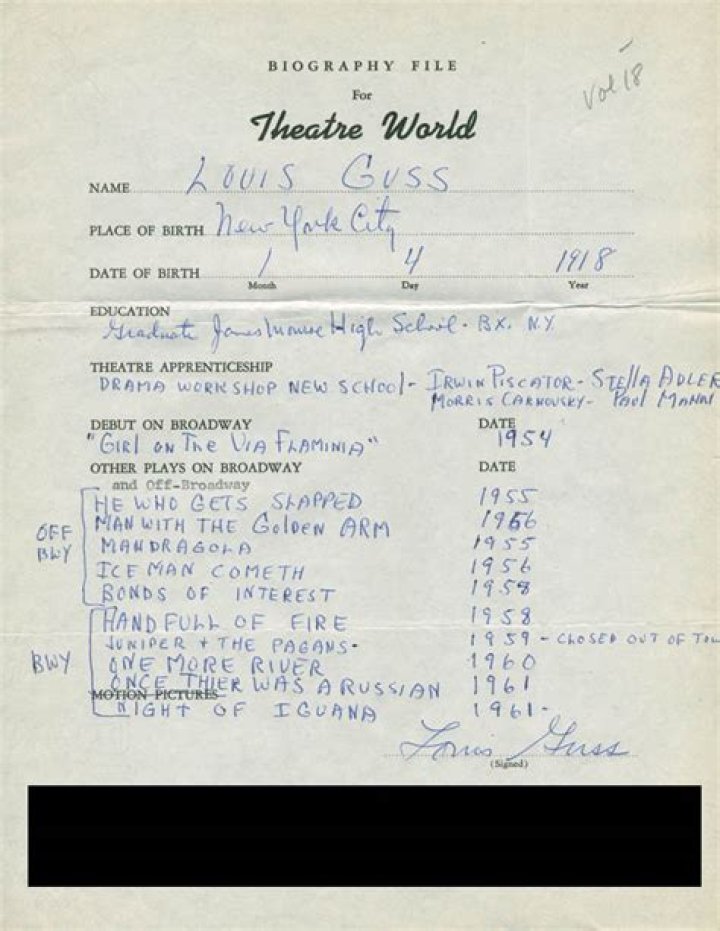 BIOGRAPHY FILE
For
Vol 18
Theatre World
NAME LOUIS GUSS
PLACE OF BIRTH New York City
DATE OF BIRTH 1 4 1918
Month Day Year
EDUCATION
Graduate James Monroe High School - BX. N.Y.
THEATRE APPRENTICESHIP
DRAMA WORKSHOP NEW SCHOOL - IRWIN PISCATOR - STELLA ADLER
MORRIS CARNOVSKY - PAUL MANN
DEBUT ON BROADWAY DATE
"GIRL ON THE VIA FLAMINIA" 1954
OTHER PLAYS ON BROADWAY DATE
and Off-Broadway
HE WHO GETS SLAPPED 1955
OFF BWY MAN WITH THE GOLDEN ARM 1956
MANDRAGOLA 1955
ICE MAN COMETH 1956
BONDS OF INTEREST 1958
HANDFULL OF FIRE 1958
JUNIPER + THE PAGANS - 1959 - CLOSED OUT OF TOW
BWY ONE MORE RIVER 1960
ONCE THIER WAS A RUSSIAN 1961
MOTION PICTURES
NIGHT OF IGUANA 1961 -
Louis Guss
(Signed)